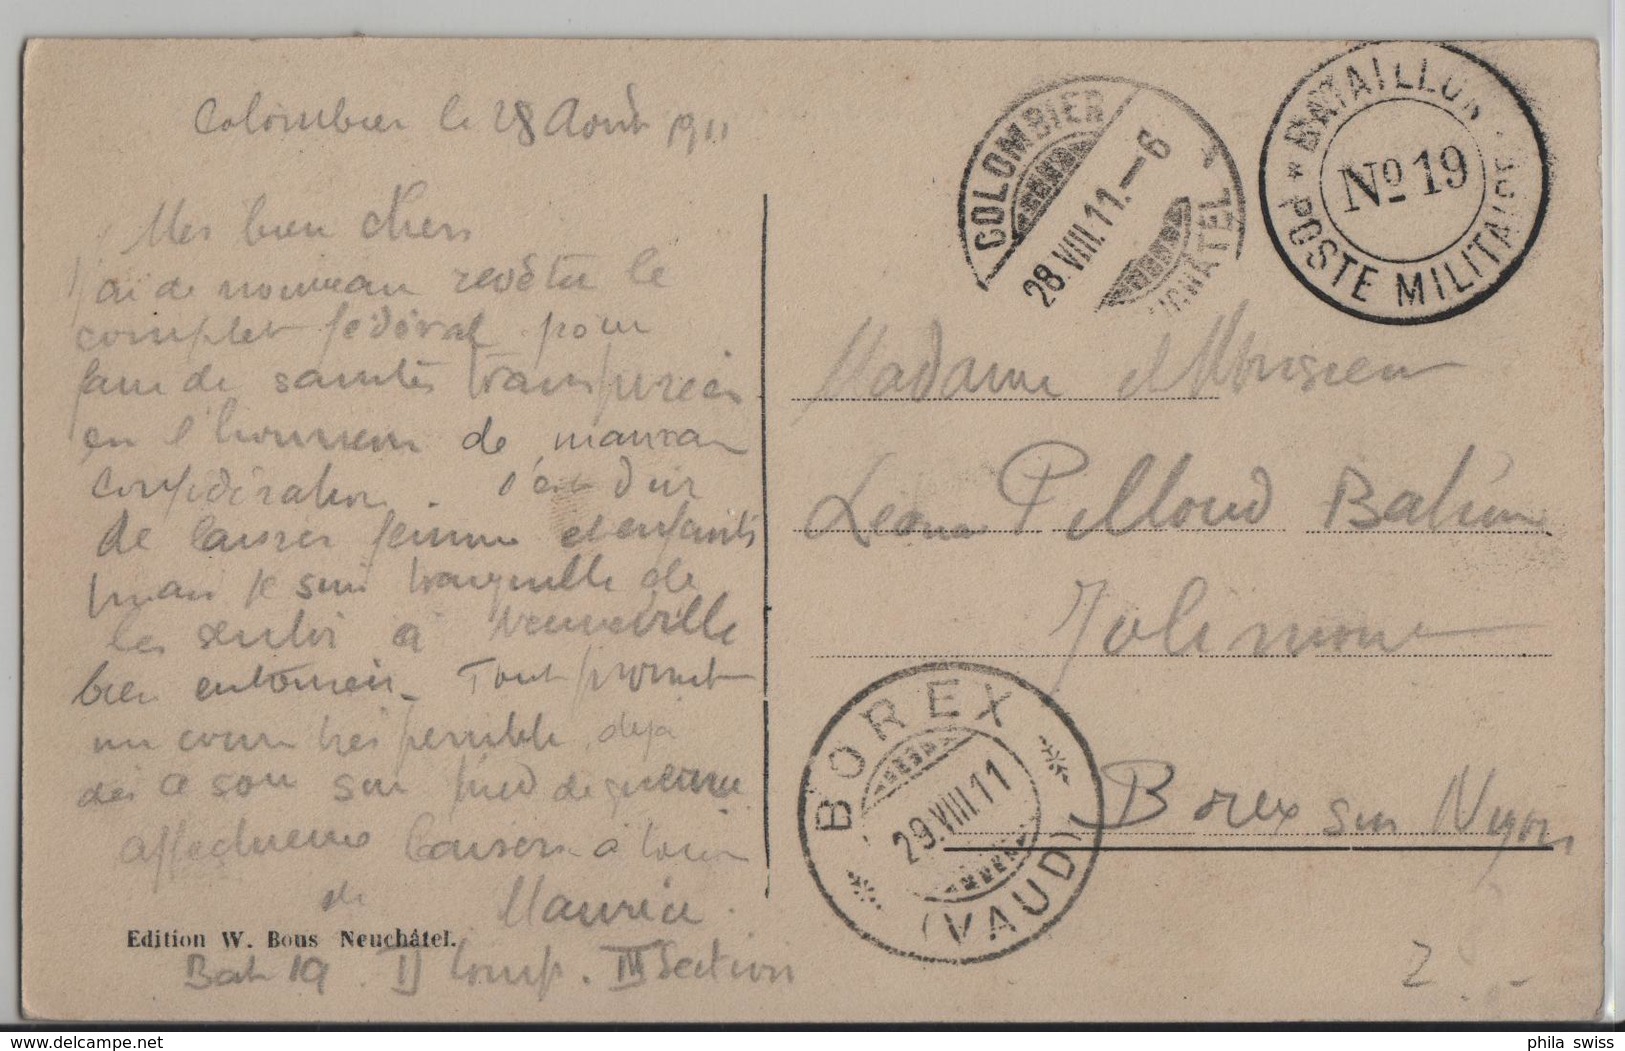 Colombier le 28 Août 1911
Mes bien chers
J'ai de nouveau revêtu le
complet fédéral pour
faire de saintes
en l'honneur de
confédération. C'est dur
de laisser femme et enfants
mais je suis tranquille de
les sentir à Neuveville
bien entourés. Tout promet
un cours très pénible, déjà
dès ce soir sur pied de guerre
affectueux baisers à tous
de Maurice.
Edition W. Bous Neuchâtel.
Bat 19 II Comp. III Section
COLOMBIER
28.VIII.11.–6
BATAILLON
No 19
POSTE MILITAIRE
Madame et Monsieur
Léon Pelloud
Jolimont
Borex sur Nyon
BOREX
29.VIII.11
(VAUD)
2.-
phila swiss